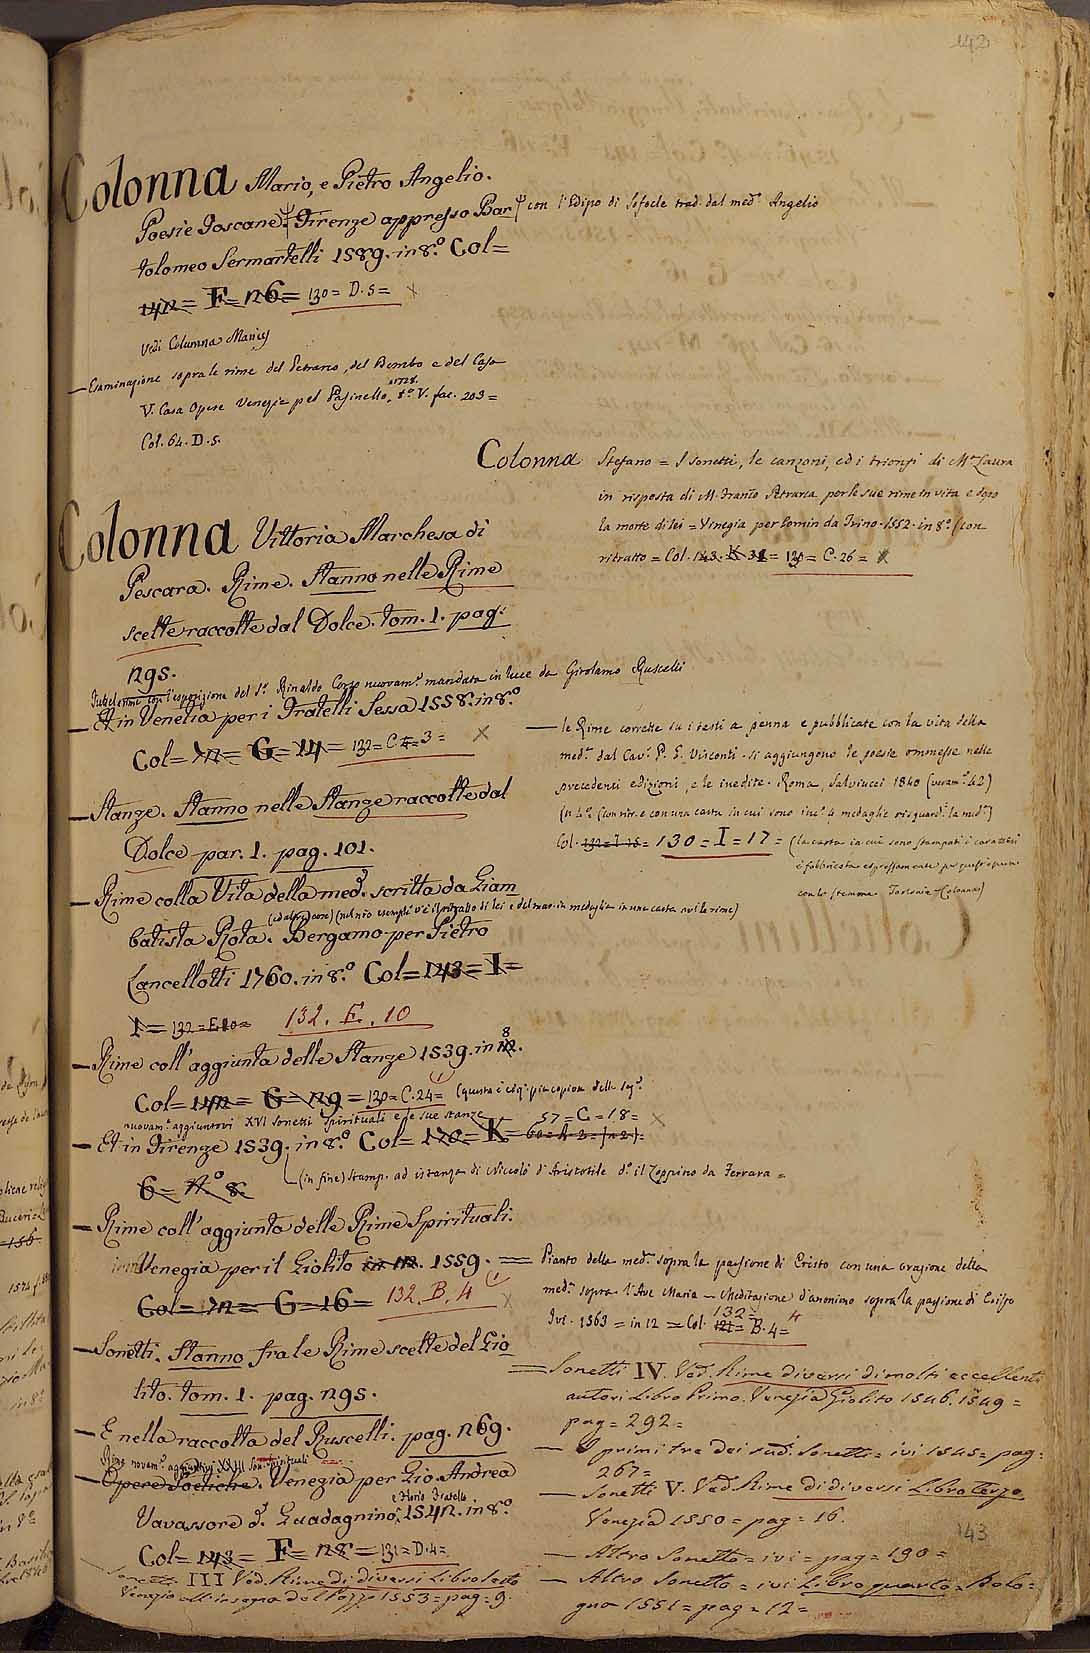 142
Colonna Mario, e Pietro Angelio.
Poesie Toscane. Firenze appresso Bar
con l'Edipo di Sofocle trad. dal med.º Angelio
tolomeo Sermartelli 1589. in 8.º Col=
F= 130= D.5=
Vedi Columna Marius
— Esaminazione sopra le rime del Petrarca, del Bembo e del Casa
V. Casa Opere Venezia pel Pasinello, 1728. t.º V. fac. 203=
Col. 64. D.5.
Colonna Stefano = I sonetti, le canzoni, ed i trionfi di M.ª Laura
in risposta di M. Franc.º Petrarca per le sue rime in vita e dopo
la morte di lei = Vinegia per Comin da Trino. 1552. in 8.º (con
ritratto = Col. 143. K 31= 130= C.26=
Colonna Vittoria Marchesa di
Pescara. Rime. Stanno nelle Rime
scelte raccolte dal Dolce. tom. 1. pag.
295.
Tutte le rime con l'esposizione del S.r Rinaldo Corso nuovam.e mandata in luce da Girolamo Ruscelli
— Et in Venetia per i Fratelli Sessa 1558. in 8.º
Col= G= 14= 132= C. 3=
— Stanze. Stanno nelle Stanze raccolte dal
Dolce par. 1. pag. 101.
— Rime colla Vita della med.ª scritta da Giam
(ed altre cose) (nel n.ro esempl. v'è il ritratto di lei e del mar. in medaglia in una carta avanti le rime)
batista Rota. Bergamo per Pietro
Lancellotti 1760. in 8.º Col= 143= I=
1= 132= E 10= 132. E. 10
— Rime coll'aggiunta delle Stanze 1539. in 8.
Col= G= 29= 130= C.24= (questa è
nuovam.e aggiuntovi XVI sonetti spirituali e le sue stanze
57= C= 18=
— Et in Firenze 1539. in 8.º Col= 170= K= 60= A 2=
6= N.º 8.
(in fine) stamp. ad istanza di Niccolò d'Aristotile d.º il Zoppino da Ferrara=
— Rime coll'aggiunta delle Rime Spirituali.
Venegia per il Giolito in 12. 1559.
Col= G= 16= 132. B. 4
— Sonetti. Stanno fra le Rime scelte del Gio
lito. tom. 1. pag. 295.
— E nella raccolta del Ruscelli. pag. 269.
Rime novam.e aggiuntivi XXIIII Son. spirituali
— Opere Poetiche. Venegia per Gio. Andrea
e Florio Fratello
Vavassore d.º Guadagnino, 1542. in 8.º
Col= 143= F= 28= 131= D.4=
— Sonetti III Ved. Rime di diversi Libro Sesto
Venezia all'insegna del Pozzo 1553= pag= 9.
— le Rime corrette su i testi a penna e pubblicate con la vita della
med.ª dal Cav.r P. E. Visconti. si aggiungono le poesie ommesse nelle
precedenti edizioni, e le inedite. Roma, Salviucci 1840 (veram.e 42)
in 4.º (con ritr. e con una carta in cui sono inc.e 4 medaglie risguard.i la med.ª)
Col. 130= I= 17= (la carta in cui sono stampati i caratteri
è fabbricata espressamente per quest'opera
con lo stemma Torlonia-Colonna)
= Pianto della med.ª sopra la passione di Cristo con una orazione della
med.ª sopra l'Ave Maria — Meditazione d'anonimo sopra la passione di Cristo
Ivi. 1563= in 12= Col. 132= B.4=
= Sonetti IV. Ved. Rime diversi di molti eccellenti
autori Libro Primo. Venezia Giolito 1546. 1549=
pag= 292=
— I primi tre dei sud.i Sonetti= ivi 1545= pag=
267=
— Sonetti V. Ved. Rime di diversi Libro terzo
Venezia 1550= pag= 16.
— Altro Sonetto= ivi= pag= 190=
— Altro Sonetto= ivi Libro quarto. Bolo=
gna 1551= pag= 12=
143